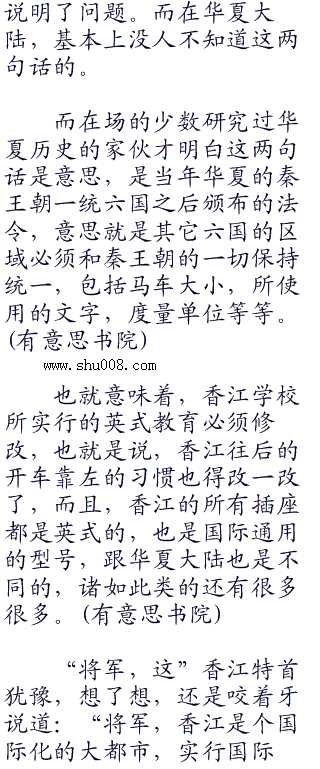 说明了问题。而在华夏大
陆，基本上没人不知道这两
句话的。
而在场的少数研究过华
夏历史的家伙才明白这两句
话是意思，是当年华夏的秦
王朝一统六国之后颁布的法
令，意思就是其它六国的区
域必须和秦王朝的一切保持
统一，包括马车大小，所使
用的文字，度量单位等等。
(有意思书院)
www.shu008.com
也就意味着，香江学校
所实行的英式教育必须修
改，也就是说，香江往后的
开车靠左的习惯也得改一改
了，而且，香江的所有插座
都是英式的，也是国际通用
的型号，跟华夏大陆也是不
同的，诸如此类的还有很多
很多。(有意思书院)
“将军，这”香江特首
犹豫，想了想，还是咬着牙
说道：“将军，香江是个国
际化的大都市，实行国际